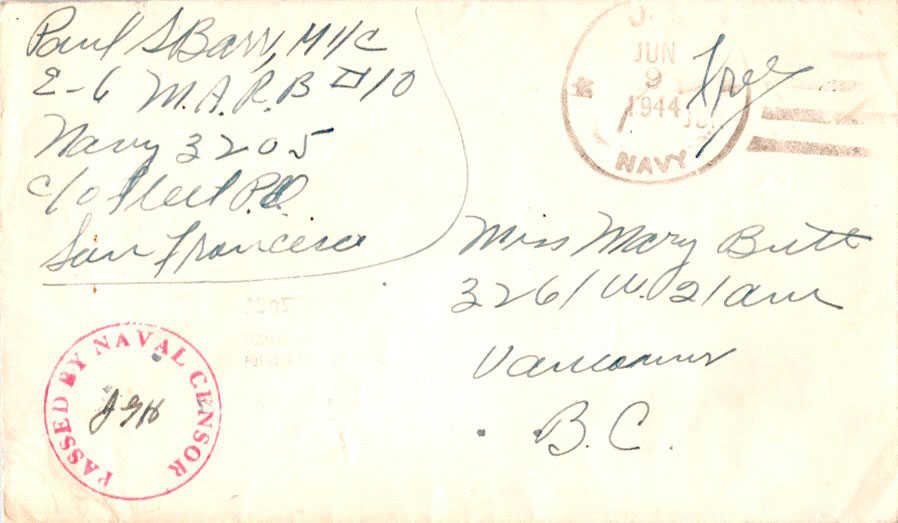 Paul S Barr, M1/C
E-6 M.A.R.B #10
Navy 3205
c/o Fleet P.O.
San Francisco
JUN
9
1944
NAVY
Free
Miss Mary Butt
3261 W. 21 ave
Vancouver
B.C.
PASSED BY NAVAL CENSOR